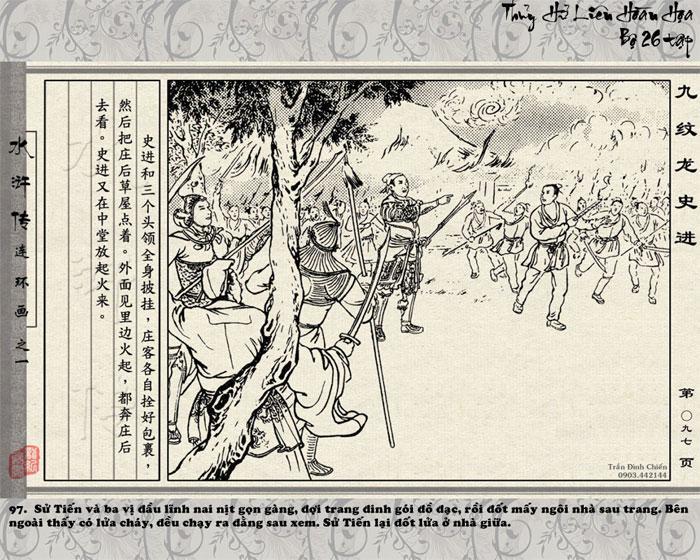 Thủy Hử Liên Hoàn Họa
Bộ 26 tập
九纹龙史进
史进和三个头领全身披挂，庄客各自拴好包裹，
然后把庄后草屋点着。外面见里边火起，都奔庄后
去看。史进又在中堂放起火来。
水浒传连环画之一
第〇九七页
Trần Đình Chiến
0903.442144
97. Sử Tiến và ba vị đầu lĩnh nai nịt gọn gàng, đợi trang đinh gói đồ đạc, rồi đốt mấy ngôi nhà sau trang. Bên
ngoài thấy có lửa cháy, đều chạy ra đằng sau xem. Sử Tiến lại đốt lửa ở nhà giữa.